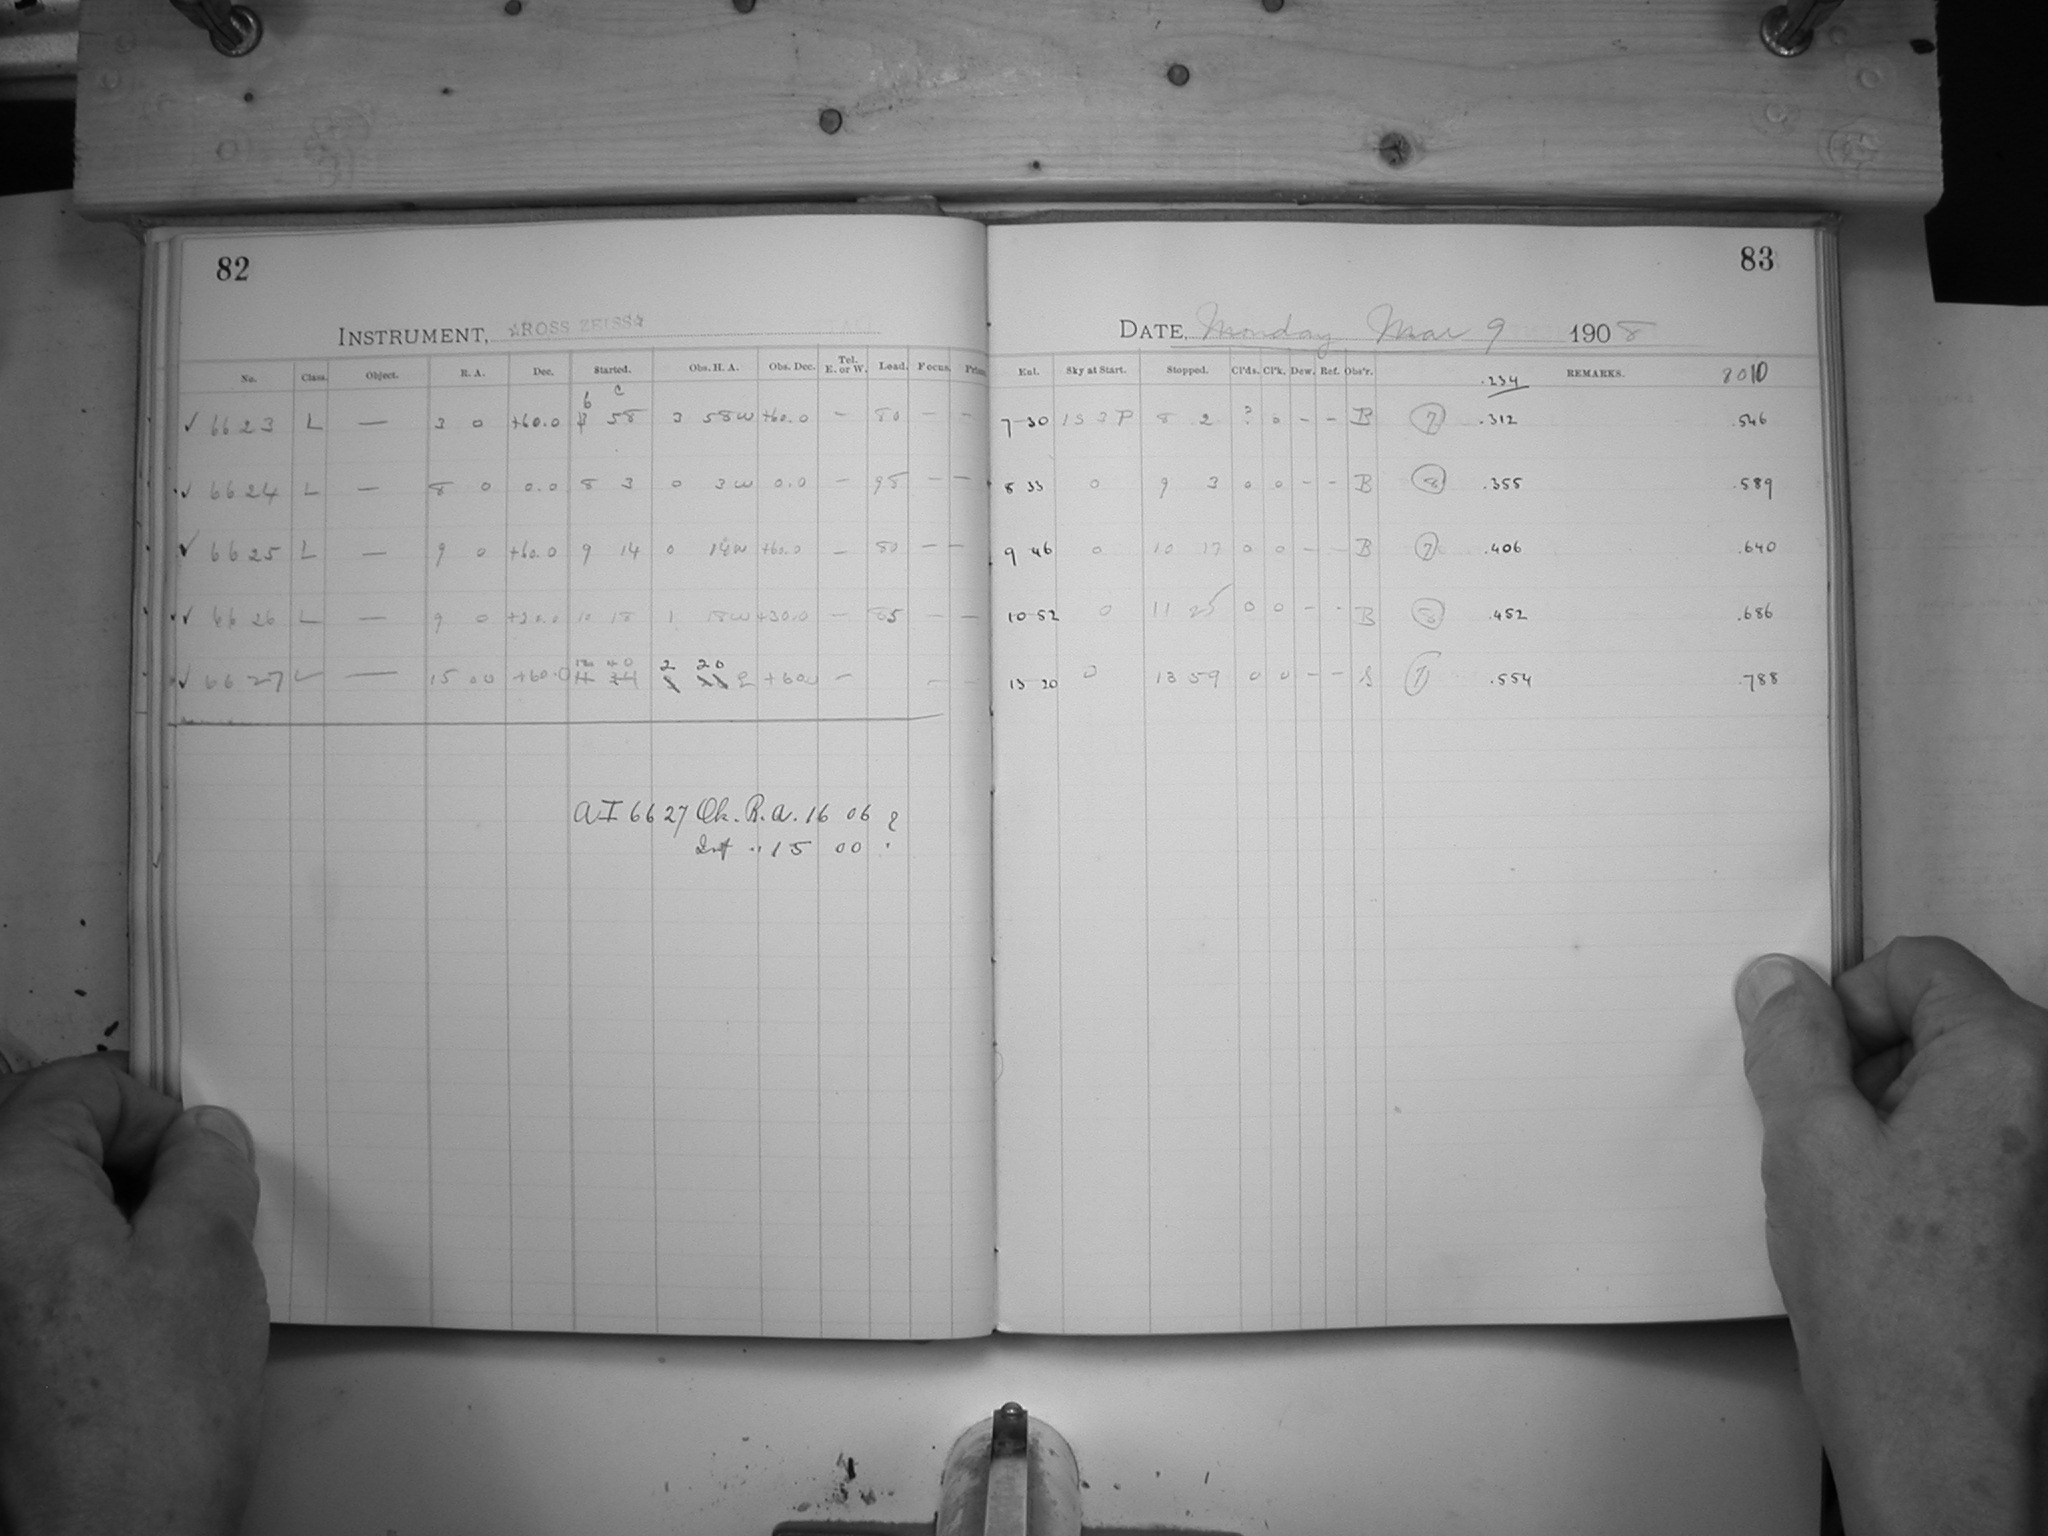 82
INSTRUMENT, ☆ROSS ZEISS☆
No. Class. Object. R. A. Dec. Started. Obs. H. A. Obs. Dec. Tel. E. or W. Lead. Focus.
✓ 6623 L — 3 0 +60.0 6 58 3 58W +60.0 — 80 — —
✓ 6624 L — 8 0 0.0 8 3 0 3W 0.0 — 95 — —
✓ 6625 L — 9 0 +60.0 9 14 0 14W +60.0 — 80 — —
✓ 6626 L — 9 0 +30.0 10 18 1 18W +30.0 — 85 — —
✓ 6627 L — 15 00 +60.0 12 40 2 20 E +60.0 — — —
AI 6627 Ok. R.A. 16 06 ?
15 00
83
DATE, Monday Mar 9 1908
Sky at Start. Stopped. Cl'ds. Cl'k. Dew. Ref. Obs'r. .234 REMARKS. 8010
7-30 1S3P 8 2 ? 0 - - B (7) .312 .546
8 33 0 9 3 0 0 - - B (8) .355 .589
9 46 0 10 17 0 0 - - B (7) .406 .640
10-52 0 11 25 0 0 - - B (8) .452 .686
13-20 0 13 59 0 0 - - S (7) .554 .788